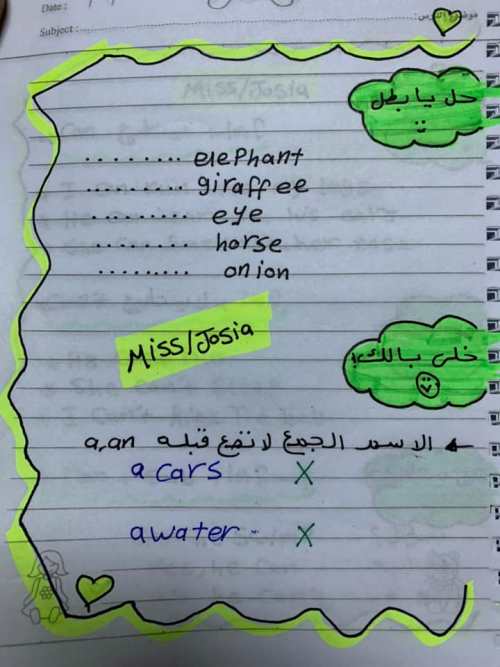 Date :
موضوع الدرس:
Subject :
حل يا بطل
......... elephant
......... giraffee
......... eye
......... horse
......... onion
Miss/Josia
خلى بالك!
← الاسم الجمع لا نضع قبله a,an
a cars X
a water X